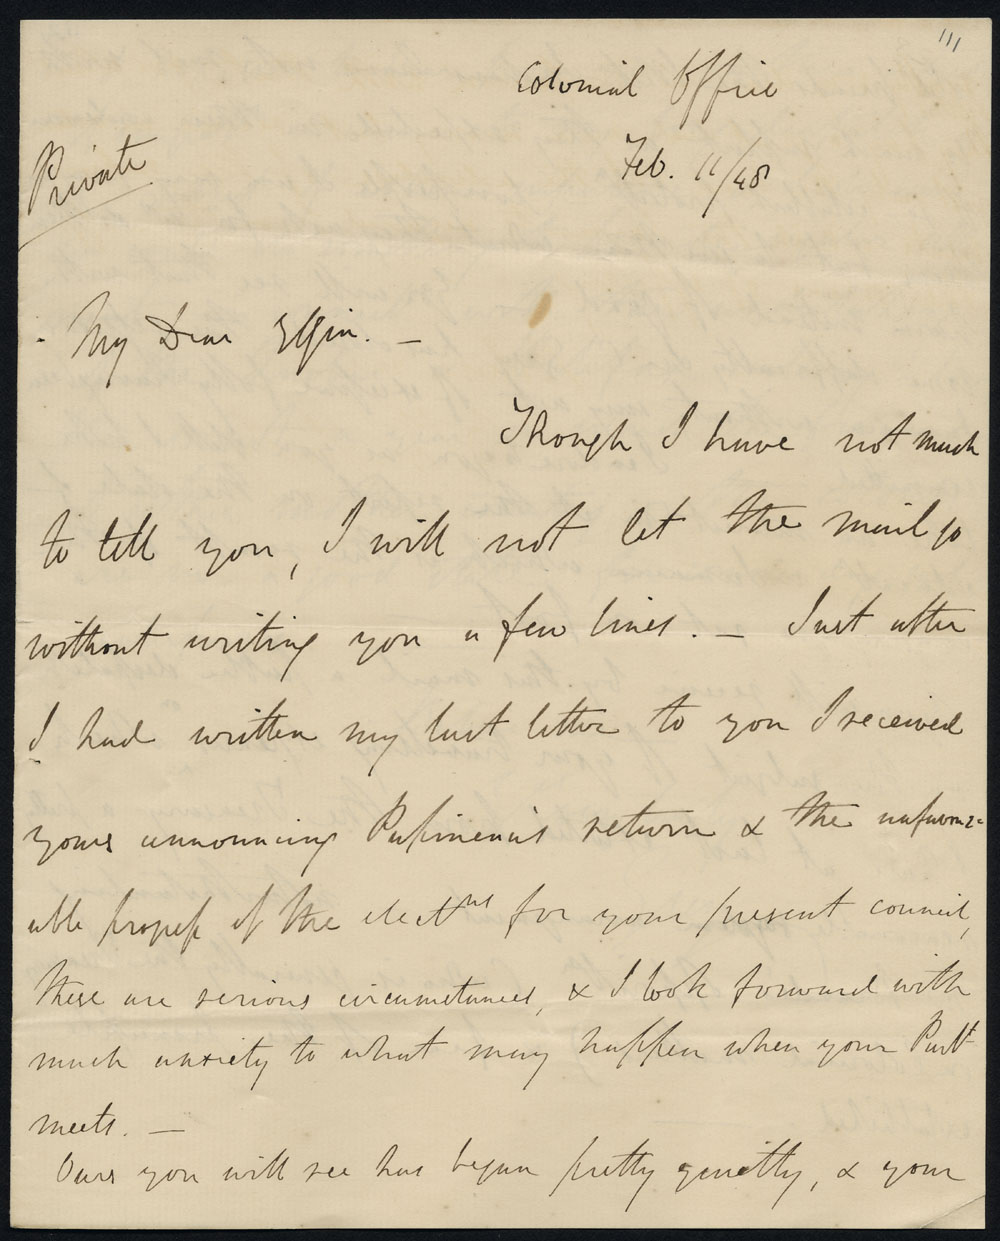 111
Colonial Office
Feb. 11/48
Private
My Dear Elgin. —
Though I have not much
to tell you, I will not let the mail go
without writing you a few lines. — Just after
I had written my last letter to you I received
yours announcing Papineau's return & the unfavor=
able progress of the elect^ns for your present council,
these are serious circumstances, & I look forward with
much anxiety to what may happen when your Parl^t
meets. —
Ours you will see has begun pretty quietly, & your